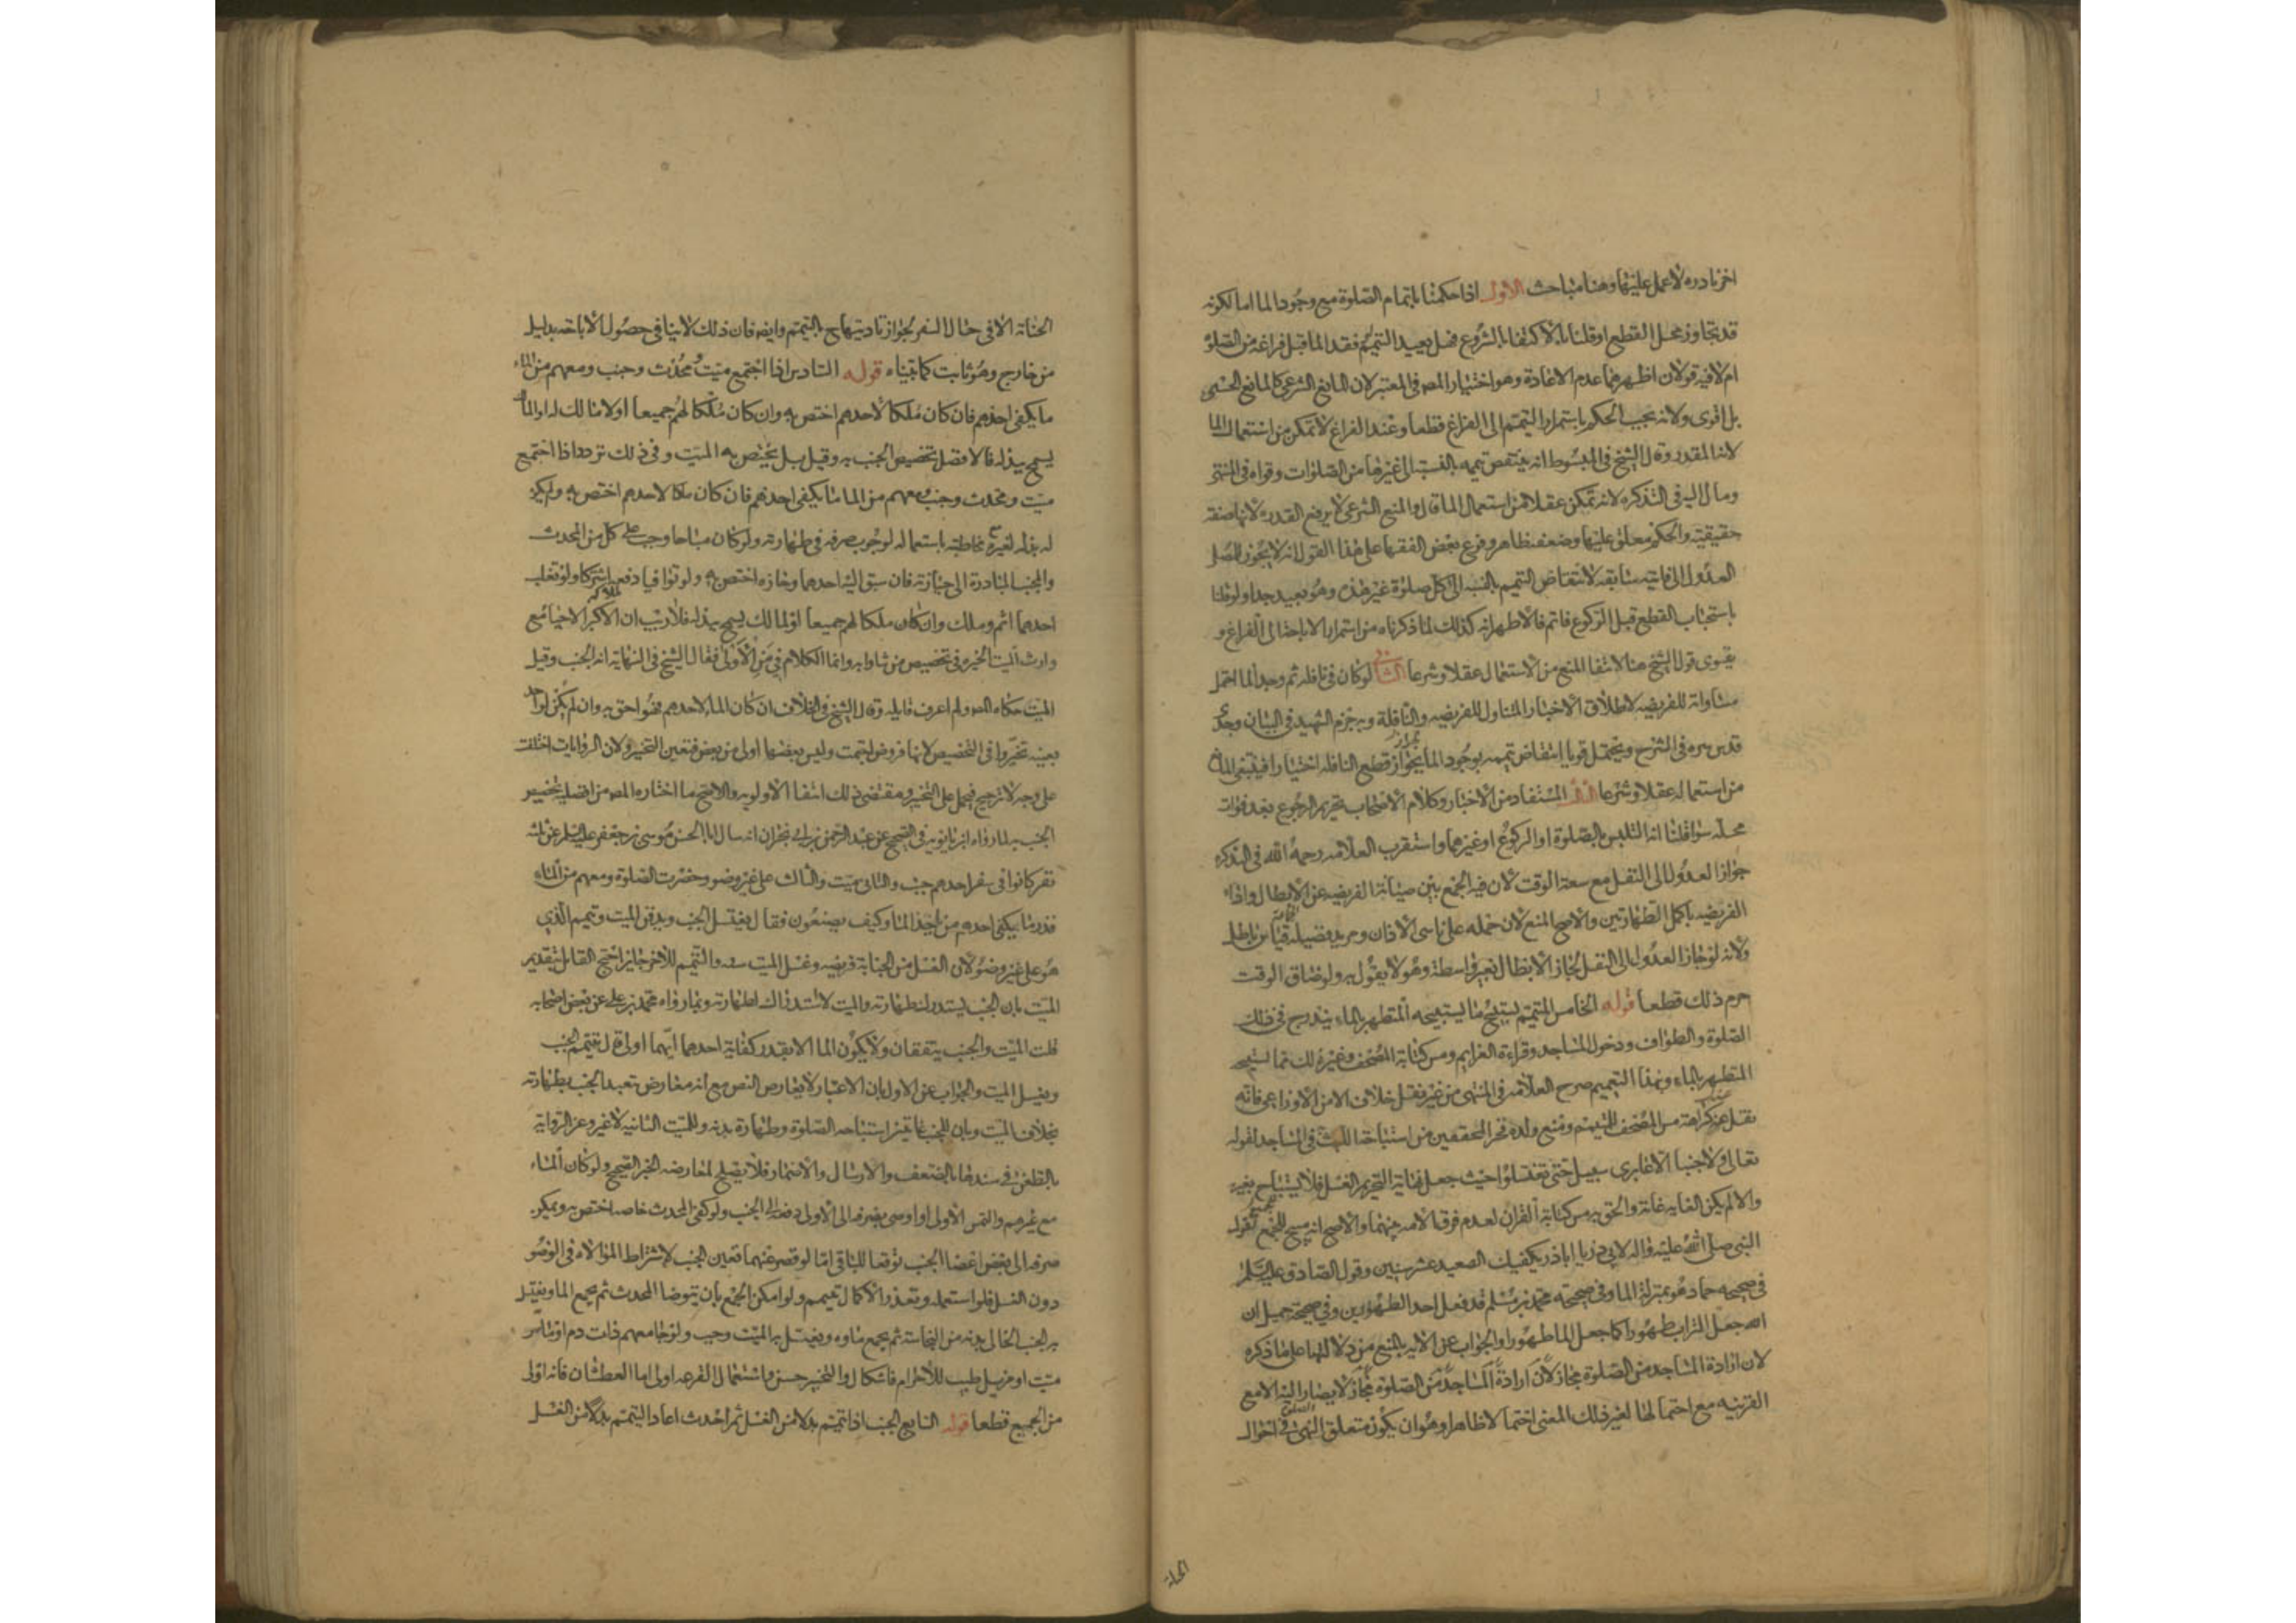 اخر نادره لا عمل عليها وهنا مباحث الاول اذا حكمنا باتمام الصلوة مع وجود الما اما لكونه
قد تجاوز محل القطع او قلنا بالاكتفا بالشروع فهل يعيد التيمم لو فقد الما قبل فراغه من الصلوة
ام لا فيه قولان اظهرهما عدم الاعادة وهو اختيار المص في المعتبر لان المانع الشرعي كالمانع الحسي
بل اقوى ولانه يجب الحكم باستمرار التيمم الى الفراغ قطعا وعند الفراغ لا تمكن من استعمال الما
لانه المقدر وقال الشيخ في المبسوط انه ينتقض تيممه بالنسبة الى غيرها من الصلوات وقواه في المنتهى
ومال اليه في التذكره لانه تمكن عقلا من استعمال الما قال والمنع الشرعي لا يرفع القدره لانها صفة
حقيقية والحكم معلق عليها وضعفه ظاهر وفرع بعض الفقها على هذا القول انه لا يجوز للمصلي
العدول الى فائتة سابقه لانتقاض التيمم بالنسبة الى كل صلوة غير هذه وهو بعيد جدا ولو قلنا
باستحباب القطع قبل الركوع فاتم فالاظهر انه كذلك لما ذكرناه من استمرار الاباحة الى الفراغ و
يقوى قول الشيخ هنا لانتفا المنع من الاستعمال عقلا وشرعا الثاني لو كان في نافله ثم وجد الما احتمل
مساواته للفريضه لاطلاق الاخبار المتناول للفريضه والنافلة وبه جزم الشهيد في البيان وجدي
قدس سره في الشرح ويحتمل قويا انتقاض تيممه بوجود الما لجواز قطع النافله اختيارا فينتفي المانع
من استعماله عقلا وشرعا الثالث المستفاد من الاخبار وكلام الاصحاب تحريم الرجوع بعد فوات
محله سوا قلنا انه التلبس بالصلوة او الركوع او غيرهما واستقرب العلامه رحمه الله في التذكره
جواز العدول الى النفل مع سعة الوقت لان فيه الجمع بين صيانة الفريضه عن الابطال واداء
الفريضه باكمل الطهارتين والاصح المنع لان حمله على ناسي الاذان ومريد فضيلة الجماعة قياس باطل
ولانه لو جاز العدول الى النفل لجاز الابطال بغير واسطة وهو لا يقول به ولو ضاق الوقت
حرم ذلك قطعا قوله الخامس المتيمم يستبيح ما يستبيحه المتطهر بالماء يندرج في ذلك
الصلوة والطواف ودخول المساجد وقراءة العزايم ومس كتابة المصحف وغير ذلك مما يستبيحه
المتطهر بالماء وبهذا التعميم صرح العلامه في المنتهى من غير نقل خلاف الا من الاوزاعي فانه
نقل عنه كراهة مس المصحف للمتيمم ومنع ولده فخر المحققين من استباحة اللبث في المساجد لقوله
تعالى ولا جنبا الا عابري سبيل حتى تغتسلوا حيث جعل غاية التحريم الغسل فلا يستباح بغيره
والا لم يكن الغايه غاية والحق به مس كتابة القران لعدم فرق الامه بينهما والاصح انه مبيح للجميع لقوله
النبي صلى الله عليه واله لابي ذر يا اباذر يكفيك الصعيد عشر سنين وقول الصادق عليه السلم
في صحيحه حماد هو بمنزلة الما وفي صحيحه محمد بن مسلم قد فعل احد الطهورين وفي صحيحة جميل ان
الله جعل التراب طهورا كما جعل الما طهورا والجواب عن الايه بالمنع من دلالتها على ما ذكره
لان ارادة المساجد من الصلوة مجاز لان ارادة المساجد من الصلوة مجاز لا يصار اليه الا مع
القرينه مع احتمالها لغير ذلك المعنى احتمالا ظاهرا وهو ان يكون متعلق النهي الصلوة في احوال
الجنابة الا في حال السفر لجواز تاديتها ح بالتيمم وايضه فان ذلك لا ينافي حصول الاباحه بدليل
من خارج وهو ثابت كما بيناه قوله السادس اذا اجتمع ميت ومحدث وجنب ومعهم من الماء
ما يكفي احدهم فان كان ملكا لاحدهم اختص به وان كان ملكا لهم جميعا او لا مالك له او المالك
يسمح ببذله فالافضل تخصيص الجنب به وقيل بل يختص به الميت وفي ذلك تردد اذا اجتمع
ميت ومحدث وجنب ومعهم من الما ما يكفي احدهم فان كان ملكا لاحدهم اختص به ولم يكن
له بذله لغيره مع مخاطبته باستعماله لوجوب صرفه في طهارته ولو كان مباحا وجب على كل من المحدث
والجنب المبادرة الى حيازته فان سبق اليه احدهما وحازه اختص به ولو توافيا دفعه اشتركا ولو تغلب
احدهما اثم وملك وان كان ملكا لهم جميعا او لمالك يسمح ببذله فلا ريب ان لملاكه الاحيا مع
وارث الميت الخيره في تخصيص من شاوا به وانما الكلام في من الاولى فقال الشيخ في النهاية انه الجنب وقيل
الميت حكاه المص ولم اعرف قايله وقال الشيخ في الخلاف ان كان الما لاحدهم فهو احق به وان لم يكن لواحد
بعينه تخيروا في التخصيص لانها فروض اجتمعت وليس بعضها اولى من بعض فتعين التخيير ولان الروايات اختلفت
على وجه لا ترجيح فيحمل على التخيير ومقتضى ذلك انتفا الاولويه والاصح ما اختاره المص من افضلية تخصيص
الجنب به لما رواه ابن بابويه في الصحيح عن عبد الرحمن بن ابي نجران انه سال ابا الحسن موسى بن جعفر عليه السلم عن ثلثه
نفر كانوا في سفر احدهم جنب والثاني ميت والثالث على غير وضو وحضرت الصلوة ومعهم من الماء
قدر ما يكفي احدهم من ياخذ الما وكيف يصنعون فقال يغتسل الجنب ويدفن الميت ويتيمم الذي
هو على غير وضو لان الغسل من الجنابة فريضه وغسل الميت سنه والتيمم للاخر جايز احتج القايل بتقديم
الميت بان الجنب يستدرك طهارته والميت لا استدراك لطهارته وبما رواه محمد بن علي عن بعض اصحابه
قلت الميت والجنب يتفقان ولا يكون الما الا بقدر كفاية احدهما ايهما اولى قال يتيمم الجنب
ويغسل الميت والجواب عن الاول بان الاعتبار لا يعارض النص مع انه معارض بتعبد الجنب بطهارته
بخلاف الميت وبان للجنب غايتين استباحه الصلوة وطهارة بدنه وللميت الثانيه لا غير وعن الرواية
بالطعن في سندها بالضعف والارسال والاضمار فلا يصلح لمعارضه الخبر الصحيح ولو كان الماء
مع غيرهم والتمس الاولى او اوصى بصرفه الى الاولى دفعه الى الجنب ولو كفى المحدث خاصه اختص به ويمكن
صرفه الى بعض اعضا الجنب توقعا للباقي اما لو قصر عنهما تعين الجنب لاشتراط الموالاه في الوضو
دون الغسل فلو استعمله وتعذر الاكمال تيمم ولو امكن الجمع بان يتوضا المحدث ثم يجمع الما ويغتسل
به الجنب الخالي بدنه من النجاسة ثم يجمع ماوه ويغسل به الميت وجب ولو جامعهم ذات دم او ماس
ميت او مزيل طيب للاحرام فاشكال والتخيير حسن واستعمال القرعه اولى اما العطشان فانه اولى
من الجميع قطعا قوله السابع الجنب اذا تيمم بدلا من الغسل ثم احدث اعاد التيمم بدلا من الغسل